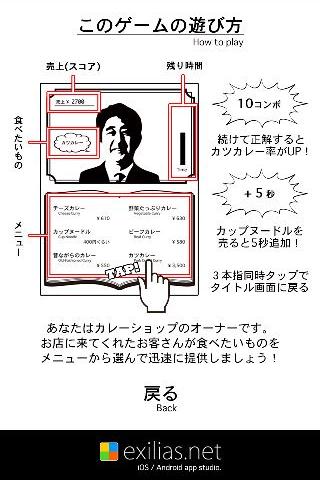 このゲームの遊び方
How to play
売上(スコア)
残り時間
売上 ¥ 2700
カツカレー
Time
食べたいもの
メニュー
チーズカレー
Cheese Curry
¥ 610
野菜たっぷりカレー
Vegetable Curry
¥ 630
カップヌードル
Cup Noodle
400円くらい
ビーフカレー
Beef Curry
¥ 580
昔ながらのカレー
Old-Fashioned Curry
¥ 550
カツカレー
¥ 3,500
TAP!
10コンボ
続けて正解すると
カツカレー率がUP！
＋5秒
カップヌードルを
売ると5秒追加！
3本指同時タップで
タイトル画面に戻る
あなたはカレーショップのオーナーです。
お店に来てくれたお客さんが食べたいものを
メニューから選んで迅速に提供しましょう！
戻る
Back
exilias.net
iOS / Android app studio.